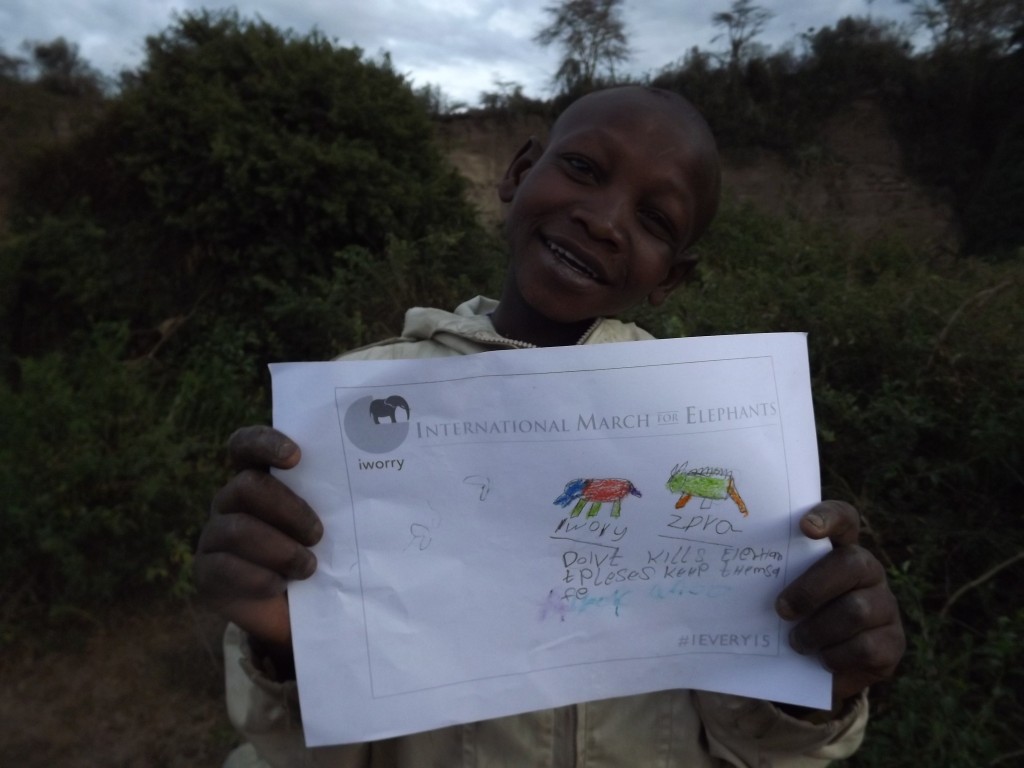 INTERNATIONAL MARCH FOR ELEPHANTS
iworry
Iwory zpra
DoNt KILLS ElEPHAN
t PLESES KEEP tHEMSA
fE
#1EVERY15